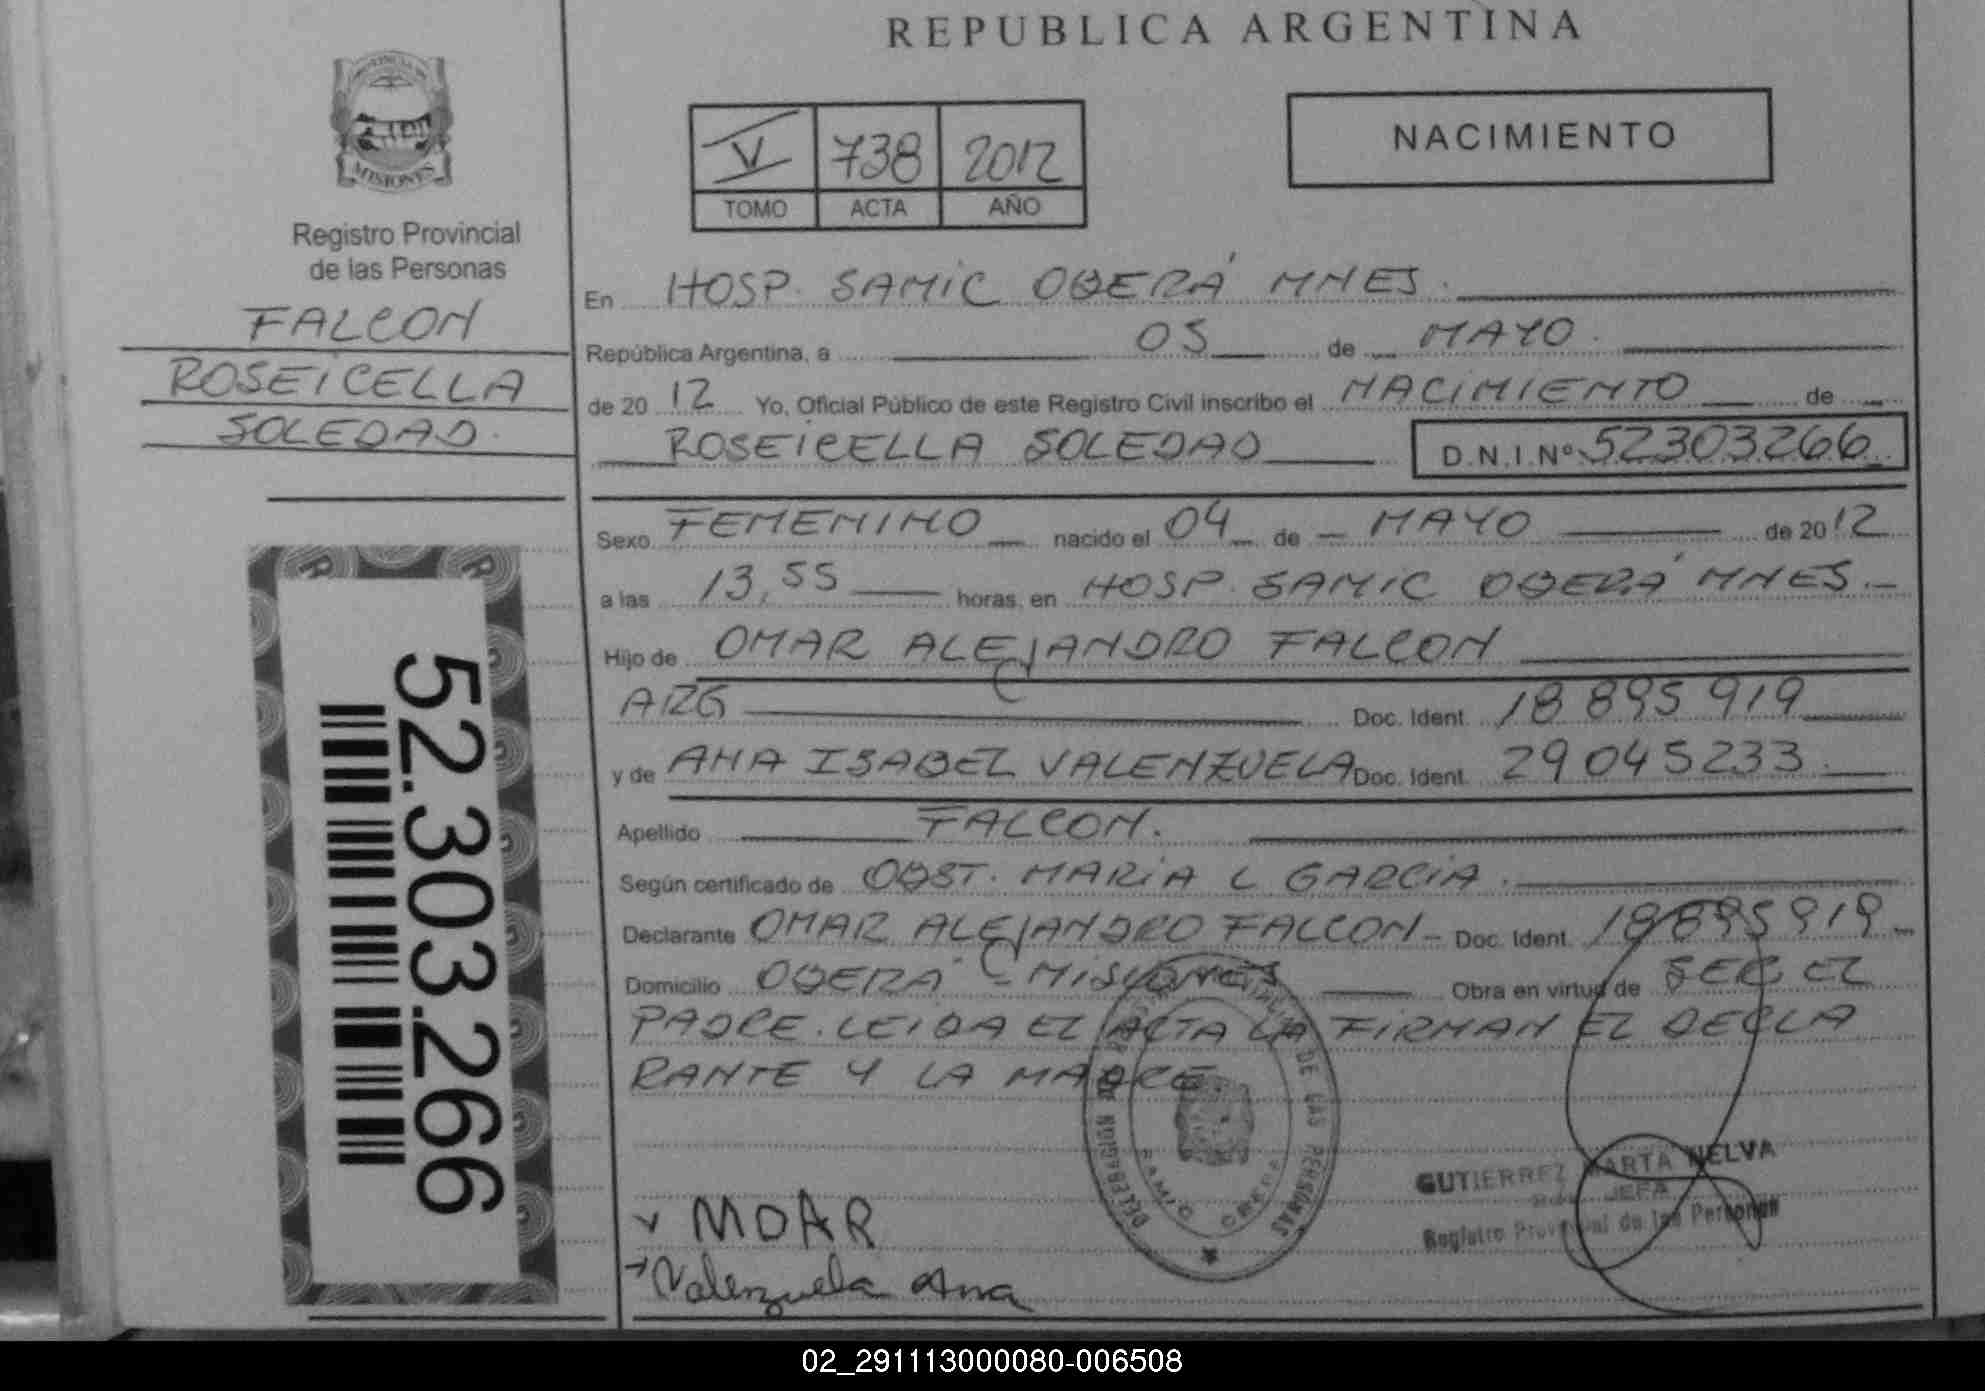 REPUBLICA ARGENTINA
PROVINCIA DE
MISIONES
Registro Provincial
de las Personas
FALCON
ROSEICELLA
SOLEDAD.
V 738 2012
TOMO ACTA AÑO
NACIMIENTO
En HOSP. SAMIC OBERÁ MNES.
República Argentina, a 05 de MAYO.
de 20 12 Yo, Oficial Público de este Registro Civil inscribo el NACIMIENTO de
ROSEICELLA SOLEDAD D.N.I.Nº 52303266
Sexo FEMENINO nacido el 04 de MAYO de 20 12
a las 13,55 horas, en HOSP. SAMIC OBERÁ MNES.
Hijo de OMAR ALEJANDRO FALCON
ARG Doc. Ident. 18 895 919
y de ANA ISABEL VALENZUELA Doc. Ident. 29 045233
Apellido FALCON.
Según certificado de OBST. MARIA L GARCIA.
Declarante OMAR ALEJANDRO FALCON - Doc. Ident. 18895919
Domicilio OBERA - MISIONES Obra en virtud de SER EL
PADRE. LEIDA EL ACTA LA FIRMAN EL DECLA
RANTE Y LA MADRE
52.303.266
DE LAS PERSONAS
MOAR
Valenzuela Ana
GUTIERREZ MARTA NELVA
JEFA
Registro Provincial de las Personas
02_291113000080-006508